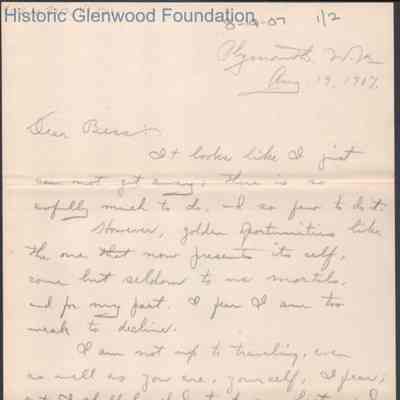 Historic Glenwood Foundation
8-19-07 1/2
Plymouth, W. Va
Aug. 19, 1907.
Dear Bess:
It looks like I just
can not get away; there is so
awfully much to do, and so few to do it.
However, golden oportunities like
the one that now presents its self,
come but seldom to us mortals,
and for my part, I fear I am too
weak to decline.
I am not up to traveling, even
as well as you are, yourself, I fear,